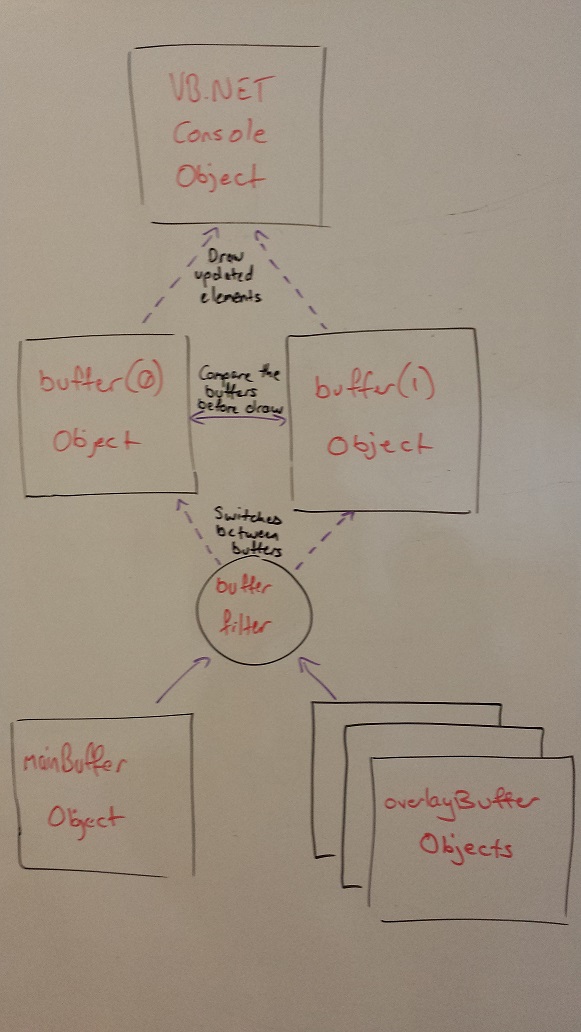 VB.NET
Console
Object
Draw
updated
elements
buffer(0)
Object
Compare the
buffers
before draw
buffer(1)
Object
Switches
between
buffers
buffer
filter
mainBuffer
Object
overlayBuffer
Objects